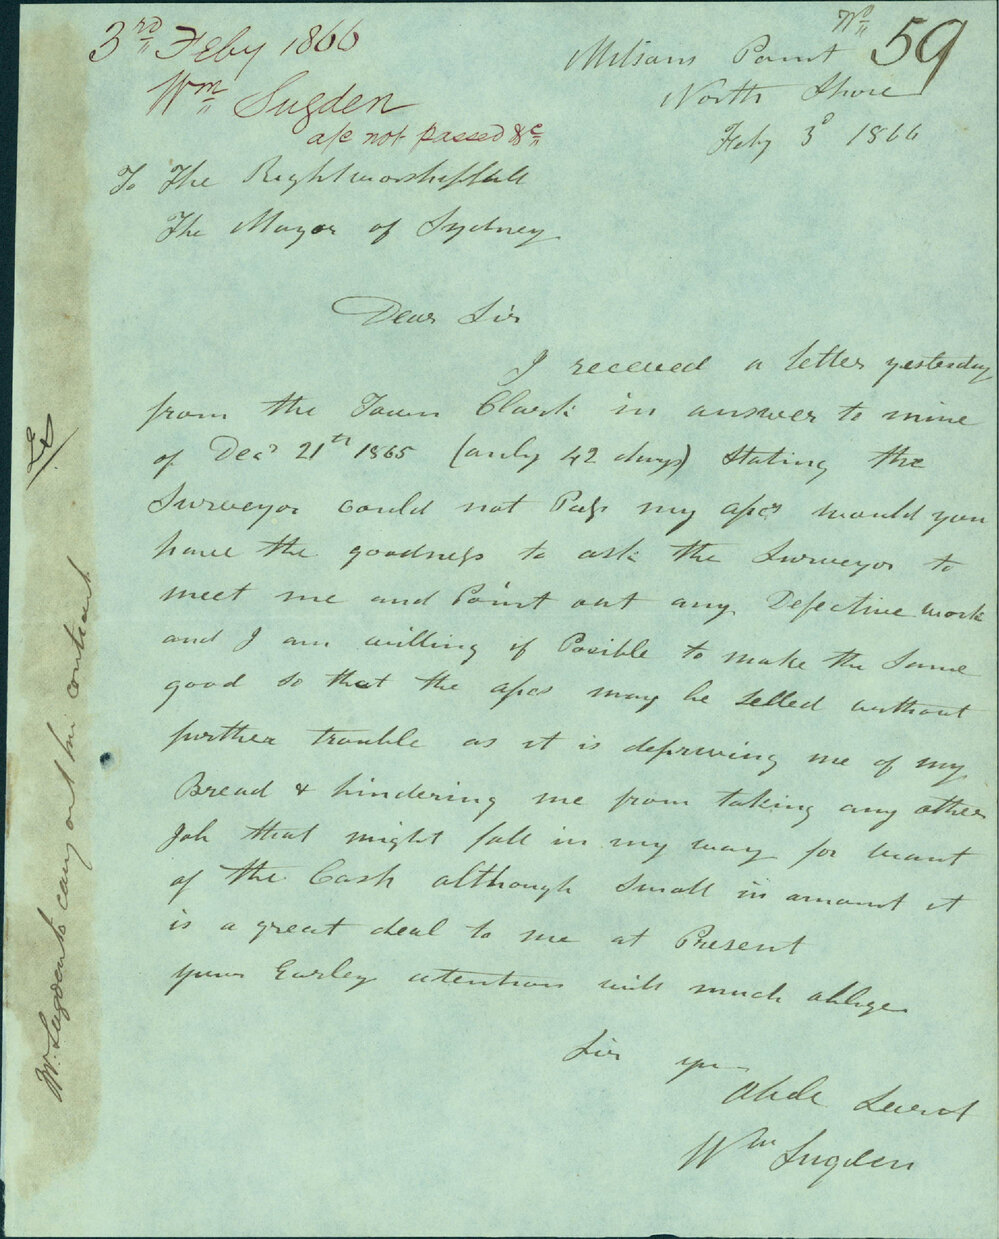 3rd Feby 1866
Wm Sugden
a/c not passed &c
No 59
Milsons Point
North Shore
Feby 3d 1866
To The Rightworshipfull
The Mayor of Sydney
Dear Sir
I receved a letter yesterday
from the Town Clark in answer to mine
of Decr 21th 1865 (only 42 days) stating the
Surveyor could not Pass my apcs would you
have the goodness to ask the Surveyor to
meet me and Point out any Defective work
and I am willing if Posible to make the same
good so that the apcs may be selled without
further trouble as it is depriving me of my
Bread & hindering me from taking any other
Job that might fall in my way for want
of the Cash although small in amount it
is a great deal to me at Present
your Earley atention will much oblige
Sir yr
Obde Servt
Wm Sugden
Mr. Sugden to carry out his contract